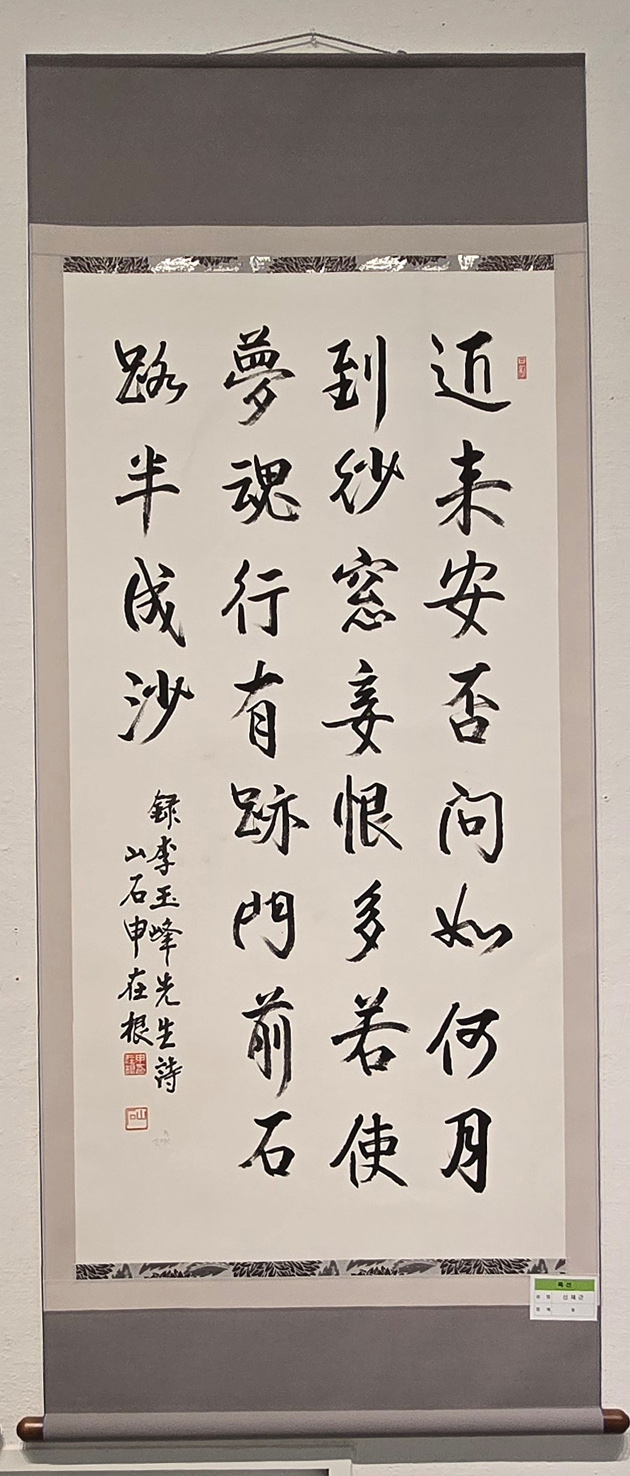 近来安否问如何月
到纱窓妾恨多若使
夢魂行有跡門前石
路半成沙
録李玉峰先生詩
山石申在根
특선
신재근